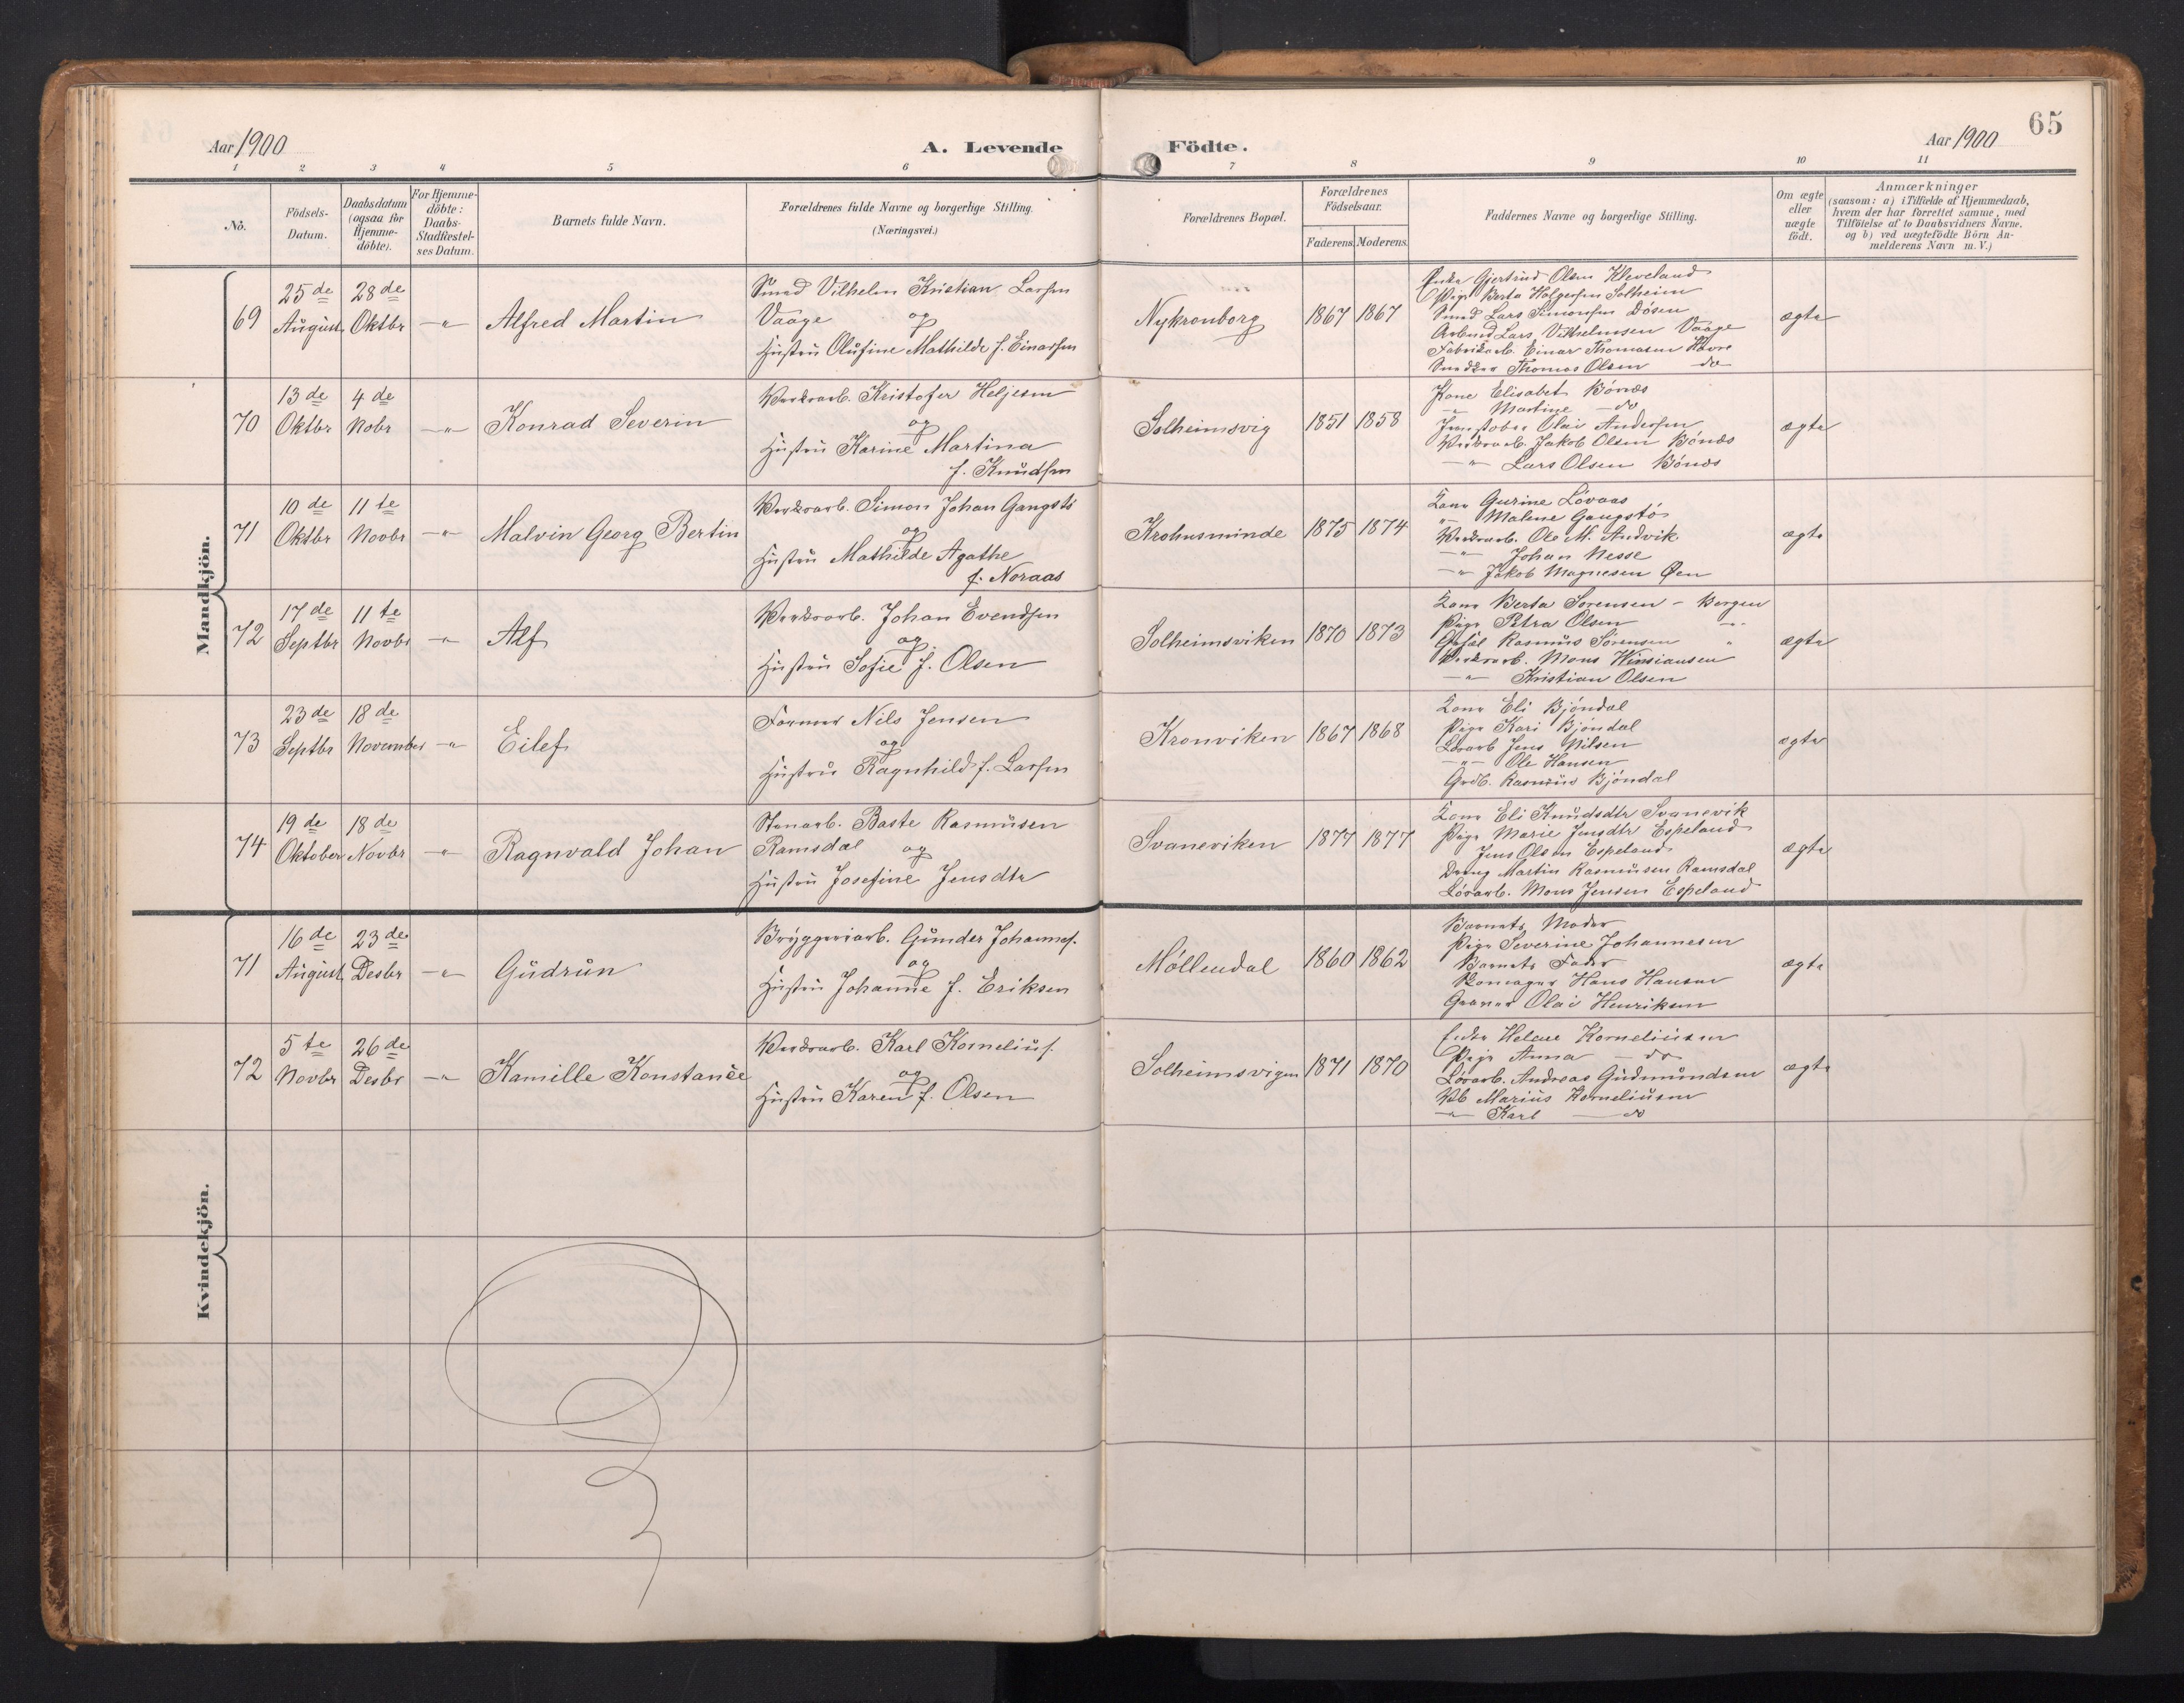 Aar 1900
A. Levende Födte.
Aar 1900
65
1 2 3 4 5 6 7 8 9 10 11
No.
Födsels-
Datum.
Daabsdatum
(ogsaa for
Hjemme-
döbte).
For Hjemme-
döbte:
Daabs-
Stadfæstel-
ses Datum.
Barnets fulde Navn.
Forældrenes fulde Navne og borgerlige Stilling.
(Næringsvei.)
Forældrenes Bopæl.
Forældrenes
Födselsaar.
Faderens. Moderens.
Faddernes Navne og borgerlige Stilling.
Om ægte
eller
uægte
födt.
Anmærkninger
(saasom: a) i Tilfælde af Hjemmedaab,
hvem der har forrettet samme, med
Tilföielse af to Daabsvidners Navne.
og b) ved uægtefödte Börn An-
melderens Navn m. V.)
Mandkjön.
69
25 de
August
28 de
Oktbr
-"-
Alfred Martin
Smed Vilhelm Kristian Larsen
Vaage og
Hustru Olufine Mathilde f. Einarsen
Nykronborg
1867 1867
Enke Gjertrud Olsen Kleveland
Pige Berta Holgersen Solheim
Smed Lars Simonsen Døsen
Arbmd Lars Vilhelmsen Vaage
Fabrikarb. Einar Thomasen Havre
Snedker Thomas Olsen do
ægte
70
13 de
Oktbr
4 de
Nobr
-"-
Konrad Severin
Verksarb. Kristofer Heljesen
og
Hustru Karine Martina
f. Knudsen
Solheimsvig
1851 1858
Kone Elisabet Bønæs
-"- Martine do
Jernstøber Olai Andersen
Verksarb. Jakob Olsen Bønæs
-"- Lars Olsen Bønæs
ægte
71
10 de
Oktbr
11 te
Novbr
-"-
Malvin Georg Bertin
Verksarb. Simon Johan Gangstø
og
Hustru Mathilde Agathe
f. Noraas
Krohnsminde
1875 1874
Kone Gurine Løvaas
" Malene Gangstø
Verksarb. Ole M. Andvik
-"- Johan Nesse
-"- Jakob Magnesen Øen
ægte
72
17 de
Septbr
11 te
Novbr
-"-
Alf
Verksarb. Johan Evendsen
og
Hustru Sofie f. Olsen
Solheimsviken
1870 1873
Kone Berta Sorensen - Bergen
Pige Petra Olsen -"-
Gesæl Rasmus Sørensen "
Verksarb. Mons Winsiansen
-"- Kristian Olsen
ægte
73
23 de
Septbr
18 de
November
-"-
Eilef
Former Nils Jensen
og
Hustru Ragnhild f. Larsen
Kronviken
1867 1868
Kone Eli Bjøndal
Pige Kari Bjøndal
Løsarb Jens Nilsen
-"- Ole Hansen
Grdb. Rasmus Bjøndal
ægte
74
19 de
Oktober
18 de
Novbr
-"-
Ragnvald Johan
Stenarb. Baste Rasmusen
Ramsdal og
Hustru Josefine Jensdtr
Svaneviken
1877 1877
Kone Eli Knudsdtr Svanevik
Pige Marie Jensdtr Espeland
Jens Olsen Espeland
Dreng Martin Rasmusen Ramsdal
Løsarb. Mons Jensen Espeland
ægte
Kvindekjön.
71
16 de
August
23 de
Desbr
-"-
Gudrun
Bryggeriarb. Gunder Johannes.
og
Hustru Johanne f. Eriksen
Møllendal
1860 1862
Barnets Moder
Pige Severine Johannesen
Barnets Fader
Skomager Hans Hansen
Graver Olai Henriksen
ægte
72
5 te
Novbr
26 de
Desbr
-"-
Kamille Konstance
Verksarb. Karl Kornelius.
og
Hustru Karen f. Olsen
Solheimsvigen
1871 1870
Enke Helene Korneliusen
Pige Anna - do
Løsarb. Andreas Gudmundsen
Vb Marius Korneliusen
-"- Karl - do
ægte